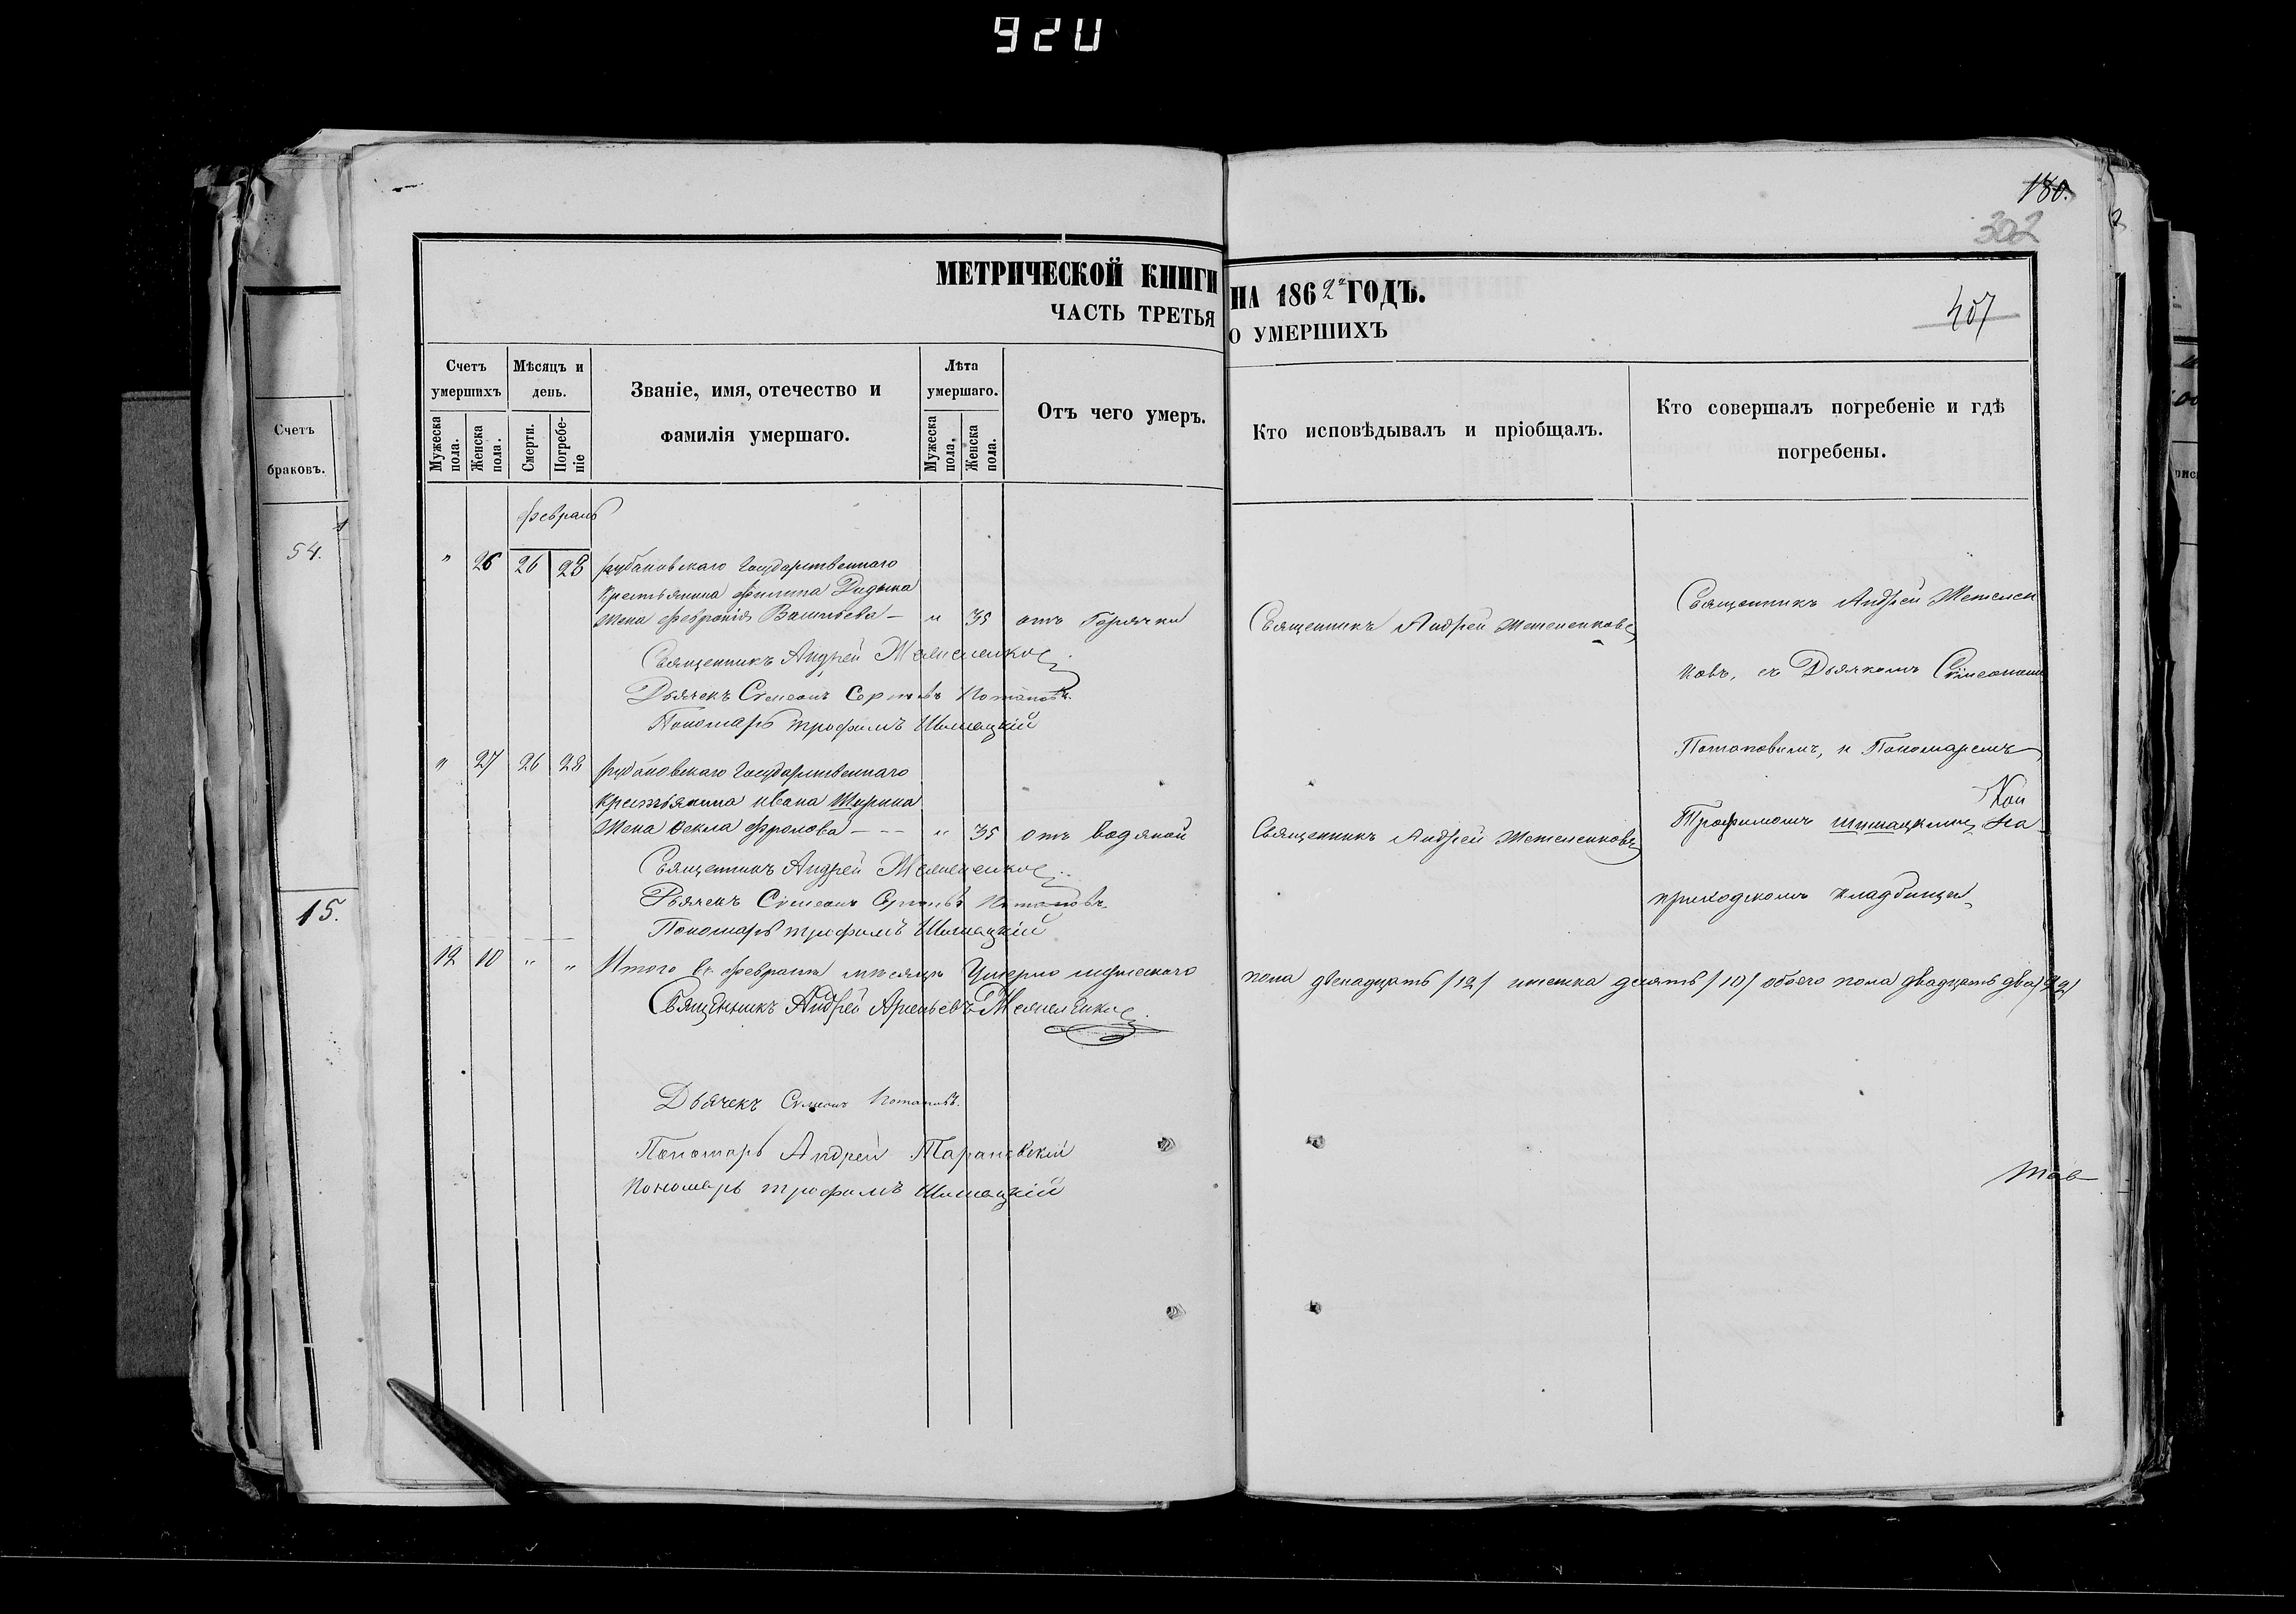 920
180.
302
407
МЕТРИЧЕСКОЙ КНИГИ НА 1862й ГОДЪ.
ЧАСТЬ ТРЕТЬЯ О УМЕРШИХЪ
Счетъ умершихъ
Мужеска пола.
Женска пола.
Мѣсяцъ и день.
Смерти.
Погребеніе
Званіе, имя, отечество и фамилія умершаго.
Лѣта умершаго.
Мужеска пола.
Женска пола.
Отъ чего умеръ.
Кто исповѣдывалъ и пріобщалъ.
Кто совершалъ погребеніе и гдѣ погребены.
Счетъ
браковъ.
54.
15.
Февраль
" 26 26 28 рубановскаго Государственнаго
крестьянина Филипа Дидыка
жена Феѵронія Васильева — " 35 отъ Горячки Священникъ Андрей Метеленковъ
Священникъ Андрей Метеленковъ
Дьячекъ Сѵмеонъ Сергѣевъ Потаповъ.
Пономарь трофимъ Шимацкій
" 27 26 28 рубановскаго Государственнаго
крестьянина ивана Щирика
жена Ѳекла Фролова — — — " 35 отъ водяной Священникъ Андрей Метеленковъ
Священникъ Андрей Метеленковъ
Дьячекъ Сѵмеонъ Сергѣевъ Потаповъ
Пономарь трофимъ Шимацкій
Священникъ Андрей Метелен
ковъ, съ Дьячкомъ Сѵмеономъ
Потаповымъ, и Пономаремъ
Трофимомъ Шимацкимъ, На
приходскомъ кладбищѣ
12 10 " " Итого въ февралѣ мѣсяцѣ Умерло мужескаго пола двенадцать /12/ женска десять /10/ обоего пола двадцать два /22/
Священникъ Андрей Арсеньевъ Метеленковъ
Дьячекъ Сѵмеонъ Потаповъ.
Пономарь Андрей Тарановскій
Пономарь трофимъ Шимацкій